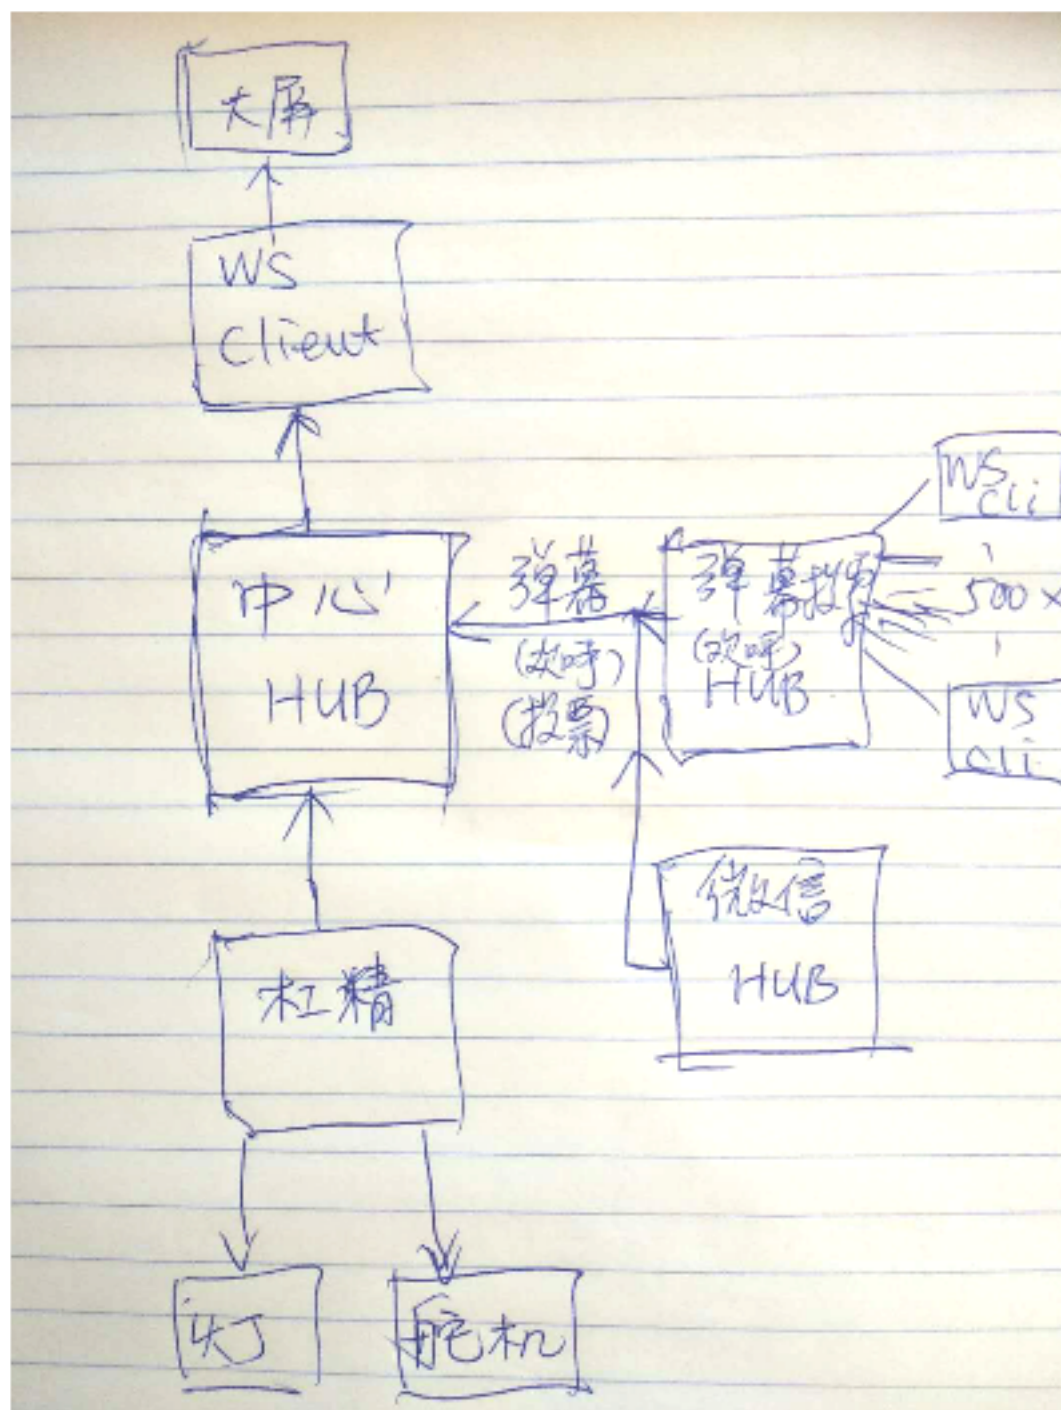 大屏
WS
Client
中心
HUB
弹幕
(欢呼)
(投票)
弹幕投票
(欢呼)
HUB
WS
Cli
500 x
WS
Cli
微信
HUB
杠精
灯
舵机